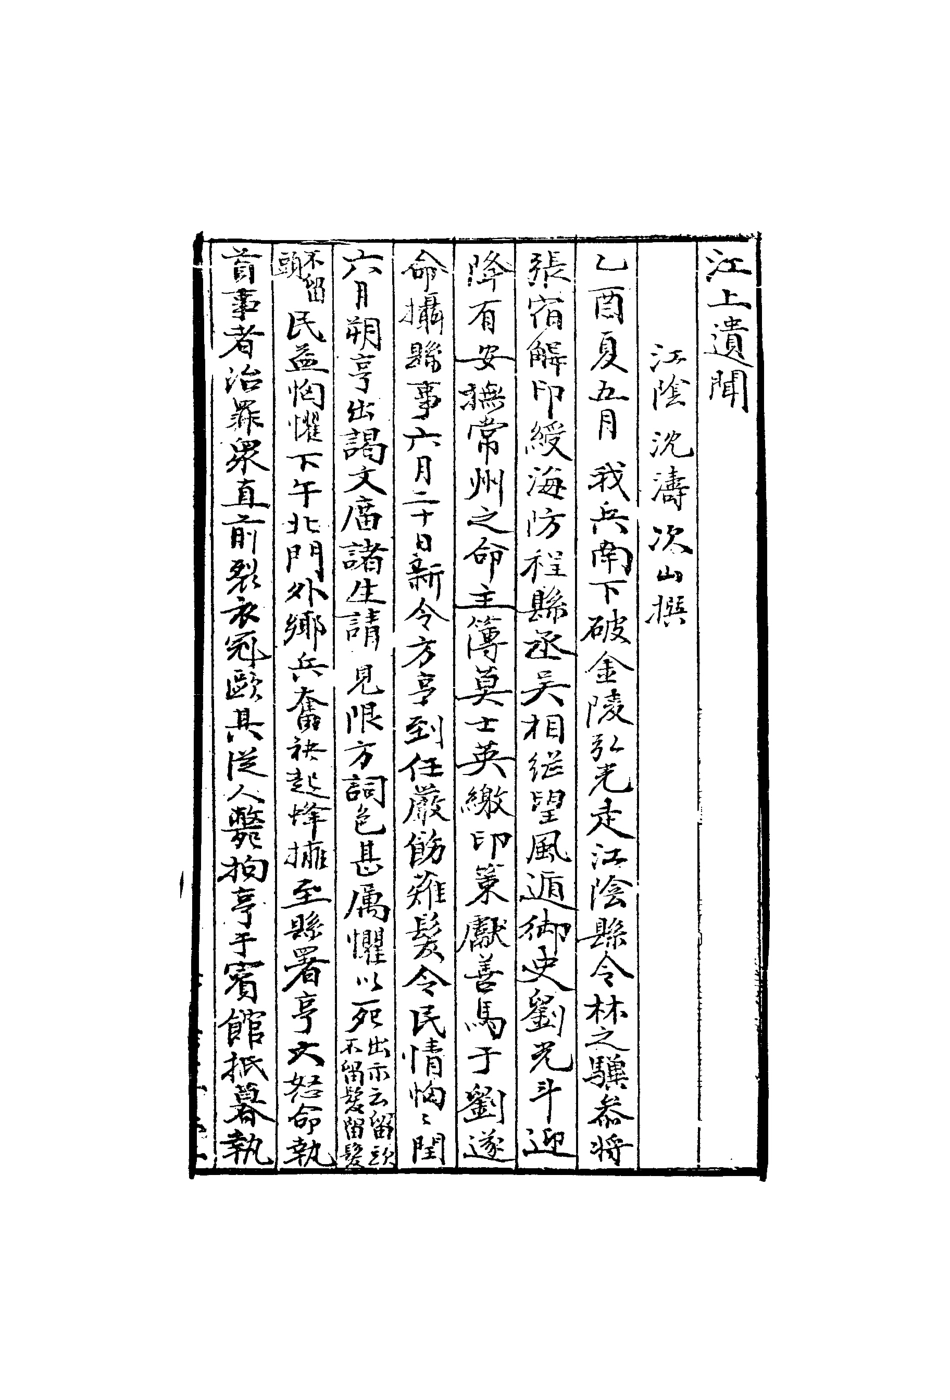 江上遺聞
江陰沈濤次山撰
乙酉夏五月我兵南下破金陵弘光走江陰縣令林之驥叅将
張宿解印綬海防程縣丞吴相継望風遁御史劉光斗迎
降有安撫常州之命主簿莫士英繳印策獻善馬于劉遂
命攝縣事六月二十日新令方亨到任嚴飭薙髮令民情恟〻閏
六月朔亨出謁文廟諸生請見限方詞色甚属懼以死出示云留頭不留髮留髮
不留頭民益恟懼下午北門外鄉兵奮袂起蜂擁至縣署亨大怒命執
首事者治罪衆直前裂衣冠毆其從人斃拘亨于賓館抵暮執